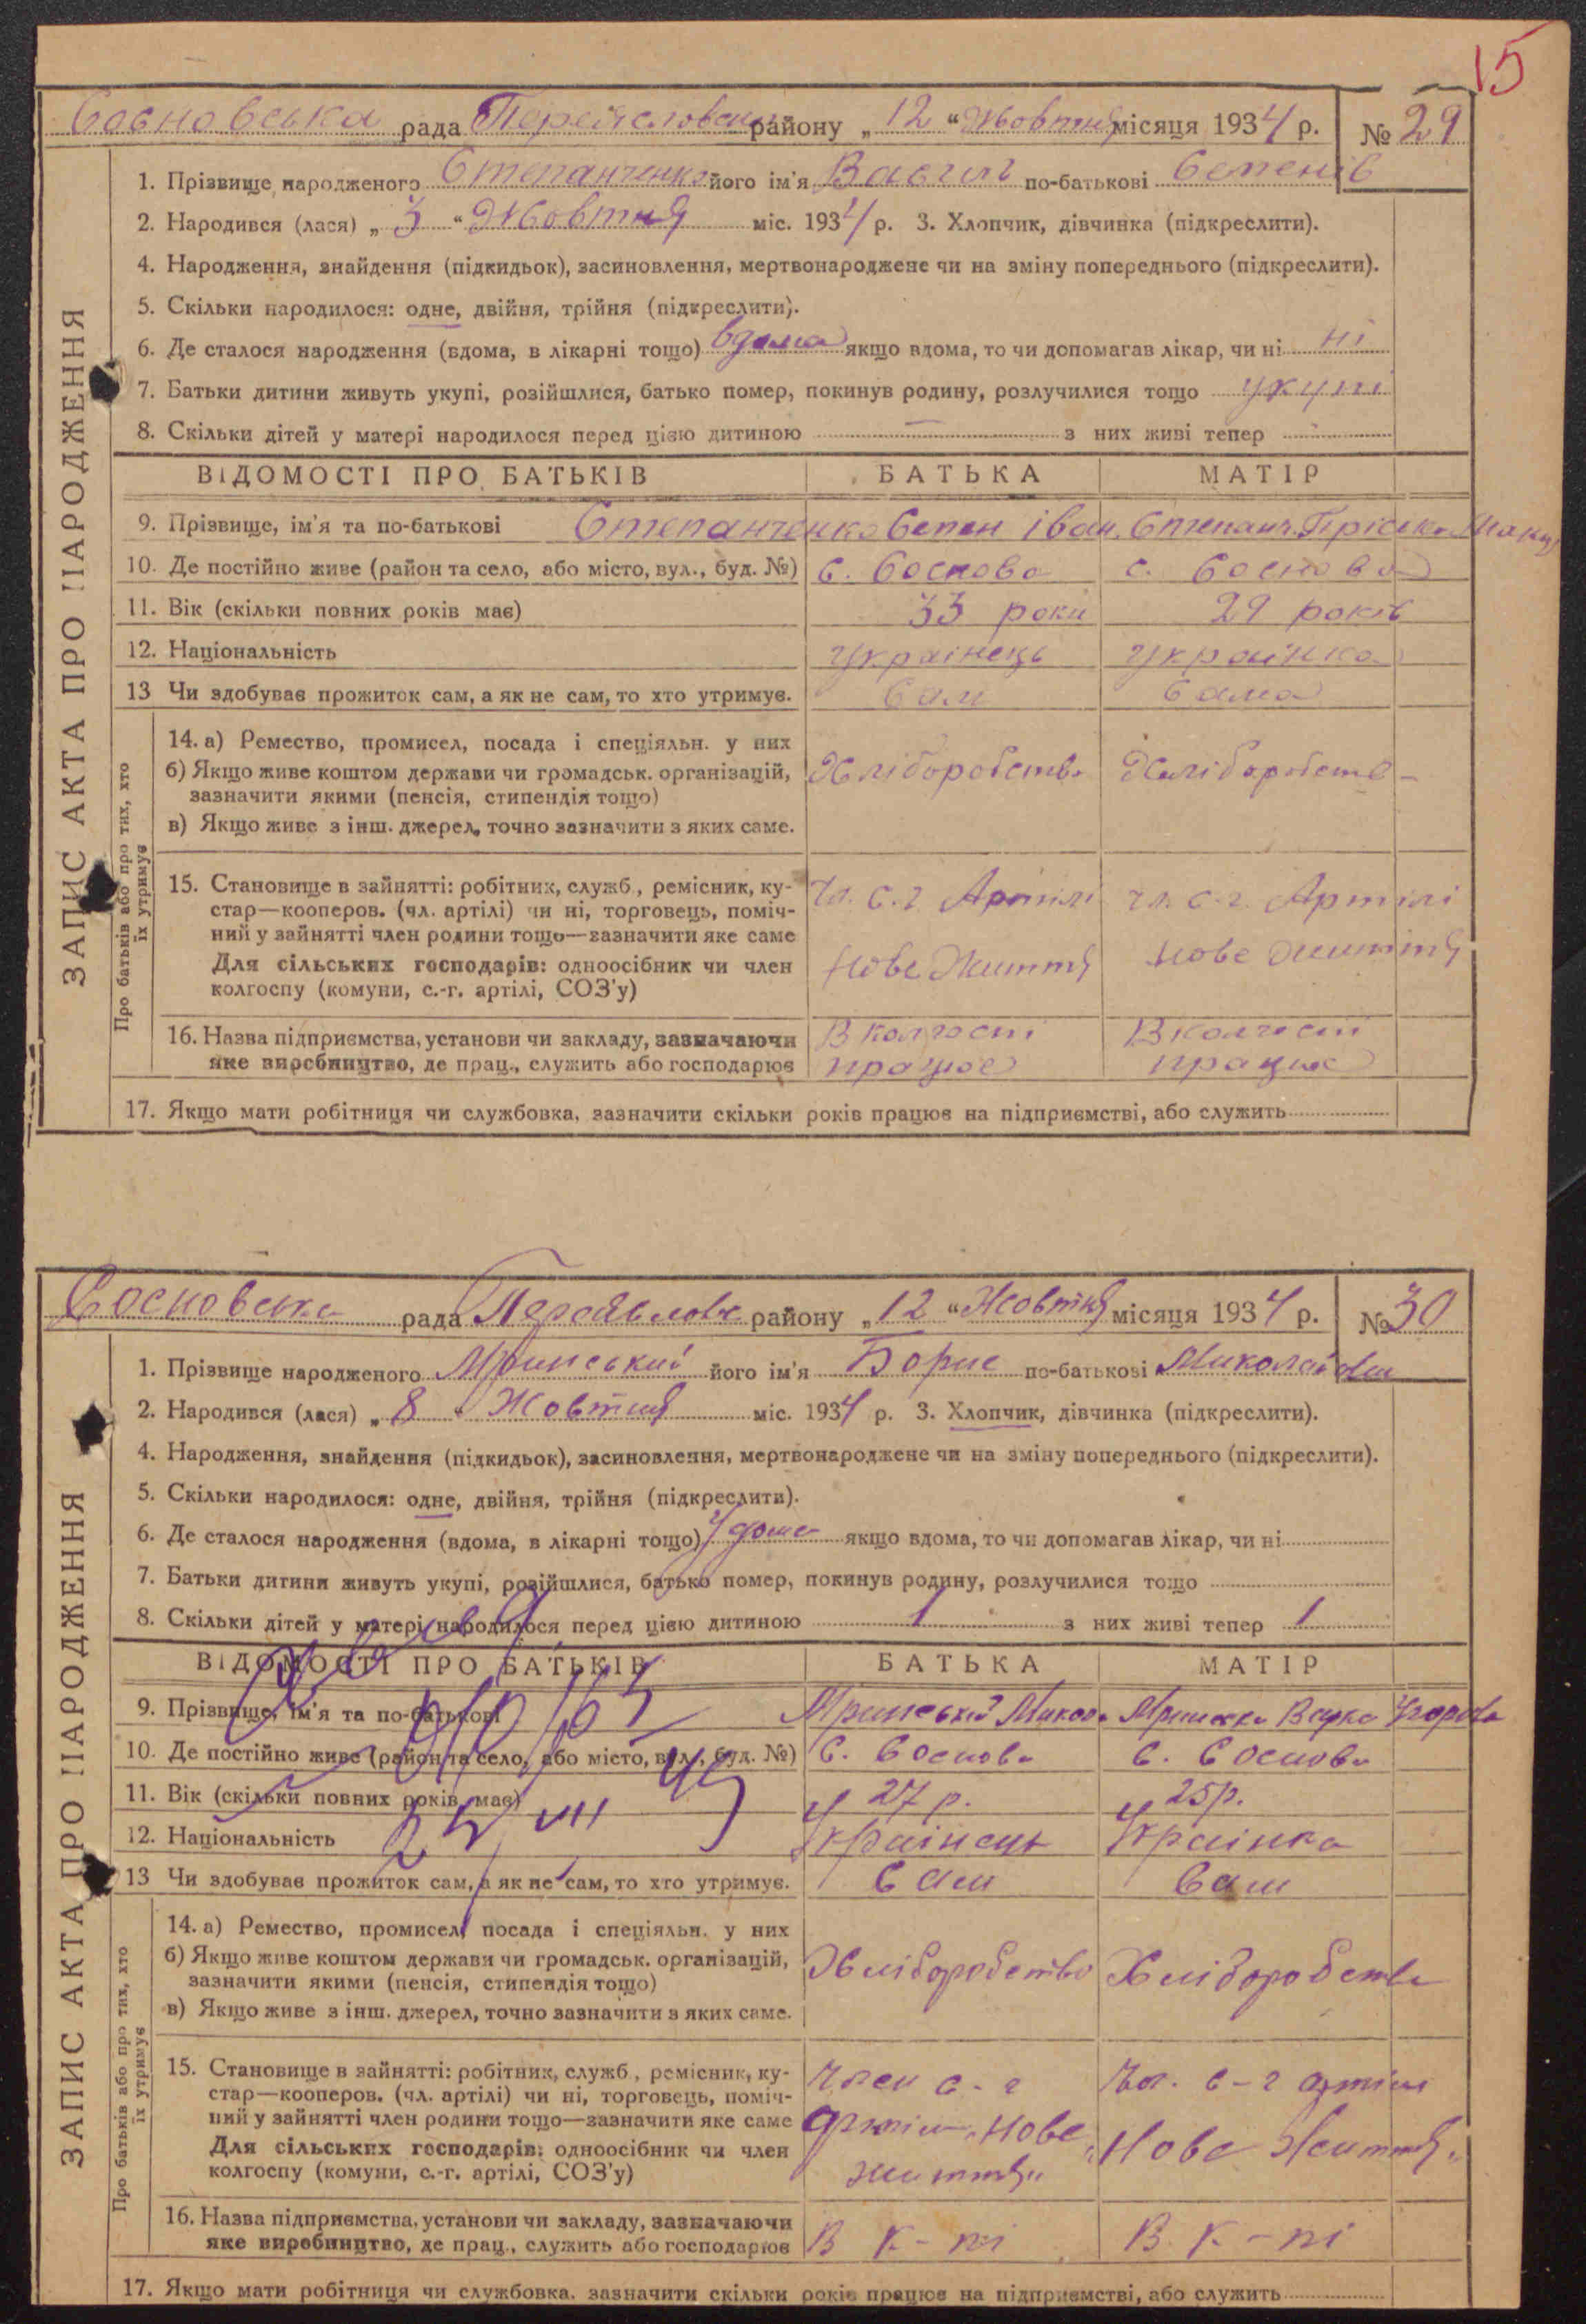 15
Сосновська рада Переясловськ району „ 12 “ Жовтня місяця 1934 р. № 29
ЗАПИС АКТА ПРО НАРОДЖЕННЯ
1. Прізвище народженого Степанченко його ім'я Василь по-батькові Семенів
2. Народився (лася) „ 3 “ Жовтня міс. 1934 р. 3. Хлопчик, дівчинка (підкреслити).
4. Народження, знайдення (підкидьок), засиновлення, мертвонароджене чи на зміну попереднього (підкреслити).
5. Скільки народилося: одне, двійня, трійня (підкреслити).
6. Де сталося народження (вдома, в лікарні тощо) вдома якщо вдома, то чи допомагав лікар, чи ні ні
7. Батьки дитини живуть укупі, розійшлися, батько помер, покинув родину, розлучилися тощо укупі
8. Скільки дітей у матері народилося перед цією дитиною — з них живі тепер
ВІДОМОСТІ ПРО БАТЬКІВ БАТЬКА МАТІР
9. Прізвище, ім'я та по-батькові Степанченко Семен Іван. Степанч. Пріська
10. Де постійно живе (район та село, або місто, вул., буд. №) с. Соснова с. Соснова
11. Вік (скільки повних років має) 33 роки 29 років
12. Національність Українець Українка
13 Чи здобував прожиток сам, а як не сам, то хто утримує. Сам Сама
Про батьків або про тих, хто їх утримує
14. а) Ремество, промисел, посада і спеціяльн. у них
б) Якщо живе коштом держави чи громадськ. організацій, Хліборобство Хліборобств –
зазначити якими (пенсія, стипендія тощо)
в) Якщо живе з інш. джерел, точно зазначити з яких саме.
15. Становище в зайнятті: робітник, служб., ремісник, ку- Чл. с.г Артілі чл. с.г. Артілі
стар—кооперов. (чл. артілі) чи ні, торговець, поміч-
ний у зайнятті член родини тощо—зазначити яке саме
Для сільських господарів: одноосібник чи член Нове Життя Нове Життя
колгоспу (комуни, с.-г. артілі, СОЗ'у)
16. Назва підприємства, установи чи закладу, зазначаючи В колгоспі В колгоспі
яке виробництво, де прац., служить або господарює працює працює
17. Якщо мати робітниця чи службовка, зазначити скільки років працює на підприємстві, або служить
Сосновська рада Переяслове району „ 12 “ Жовтня місяця 1934 р. № 30
ЗАПИС АКТА ПРО НАРОДЖЕННЯ
1. Прізвище народженого Мринський його ім'я Борис по-батькові Миколайович
2. Народився (лася) „ 8 “ Жовтня міс. 1934 р. 3. Хлопчик, дівчинка (підкреслити).
4. Народження, знайдення (підкидьок), засиновлення, мертвонароджене чи на зміну попереднього (підкреслити).
5. Скільки народилося: одне, двійня, трійня (підкреслити).
6. Де сталося народження (вдома, в лікарні тощо) Удома якщо вдома, то чи допомагав лікар, чи ні
7. Батьки дитини живуть укупі, розійшлися, батько помер, покинув родину, розлучилися тощо
8. Скільки дітей у матері народилося перед цією дитиною 1 з них живі тепер 1
ВІДОМОСТІ ПРО БАТЬКІВ БАТЬКА МАТІР
9. Прізвище, ім'я та по-батькові Мринський Микола Мринська Варка
10. Де постійно живе (район та село, або місто, вул., буд. №) с. Соснова с. Соснова
11. Вік (скільки повних років має) 27 р. 25 р.
12. Національність Українець Українка
13 Чи здобував прожиток сам, а як не сам, то хто утримує. Сам Сам
Про батьків або про тих, хто їх утримує
14. а) Ремество, промисел, посада і спеціяльн. у них
б) Якщо живе коштом держави чи громадськ. організацій, Хліборобство Хліборобство
зазначити якими (пенсія, стипендія тощо)
в) Якщо живе з інш. джерел, точно зазначити з яких саме.
15. Становище в зайнятті: робітник, служб., ремісник, ку- Член с-г Чл. с-г артілі
стар—кооперов. (чл. артілі) чи ні, торговець, поміч-
ний у зайнятті член родини тощо—зазначити яке саме артіли „Нове
Для сільських господарів: одноосібник чи член „Нове Життя„
колгоспу (комуни, с.-г. артілі, СОЗ'у) життя„
16. Назва підприємства, установи чи закладу, зазначаючи
яке виробництво, де прац., служить або господарює В к-пі В к-пі
17. Якщо мати робітниця чи службовка, зазначити скільки років працює на підприємстві, або служить